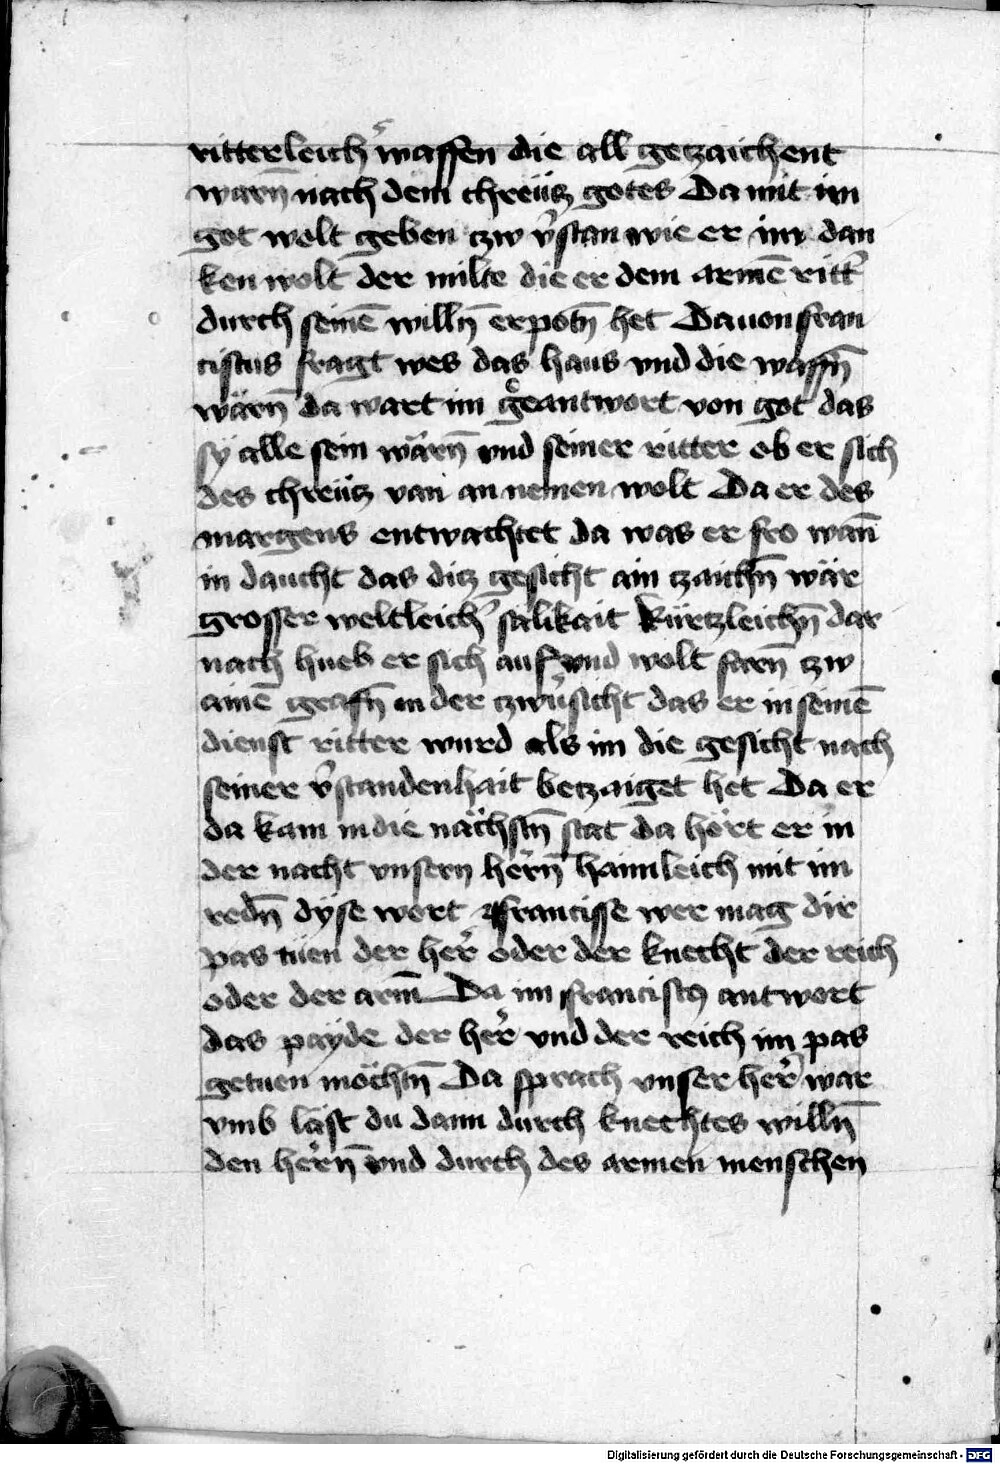 ritterleicher waffen die all getzaichent
warñ nach dem chreücz gotes Da mit im
got wolt geben czw v̉stan wie er im dan
ken wolt der milte die er dem armē ritt̉
durch seinē willñ erpotñ het Dauon fran
ciscus fragt wes das haus vnd die waffñ
wärñ da wart im geantwort von got das
sÿ alle sein wärñ vnd seiner ritter ob er sich
des chreücz van an nemen wolt Da er des
margens entwachtet da was er fro wañ
in daucht das ditz gesicht ain tzaichñ wär
grosser weltleich̉ sälikait kürtzleichñ dar
nach hueb er sich auf vnd wolt farñ tzw
ainē grafñ in der tzwu̇sicht das er in seinē
dienst ritter wurd als im die gesicht nach
seiner v̉standenhait betzaiget het Da er
da kam in die nächstñ stat da hört er in
der nacht vnsern herñ haimleich mit im
redñ dÿse wort francisse wer mag dir
pas tuen der her̉ oder der knecht der reich
oder der arm̄ Da im franciscꝰ antwort
das paÿde der her̉ vnd der reich im pas
getuen möchtñ Da sprach vnser her̉ war
vmb läst du dann durch knechtes willñ
den herñ vnd durch des armen menschen
Digitalisierung gefördert durch die Deutsche Forschungsgemeinschaft - DFG